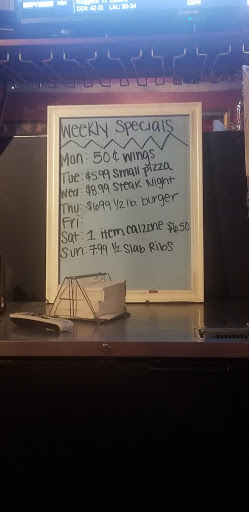 DEN: 42-21 LAL: 30-34
ESPN
Weekly Specials
Mon: 50¢ wings
Tue: $5.99 small pizza
Wed: $8.99 steak Night
Thu: $6.99 1/2 lb. burger
Fri:
Sat: 1 item calzone $6.50
Sun: 7.99 1/2 Slab Ribs